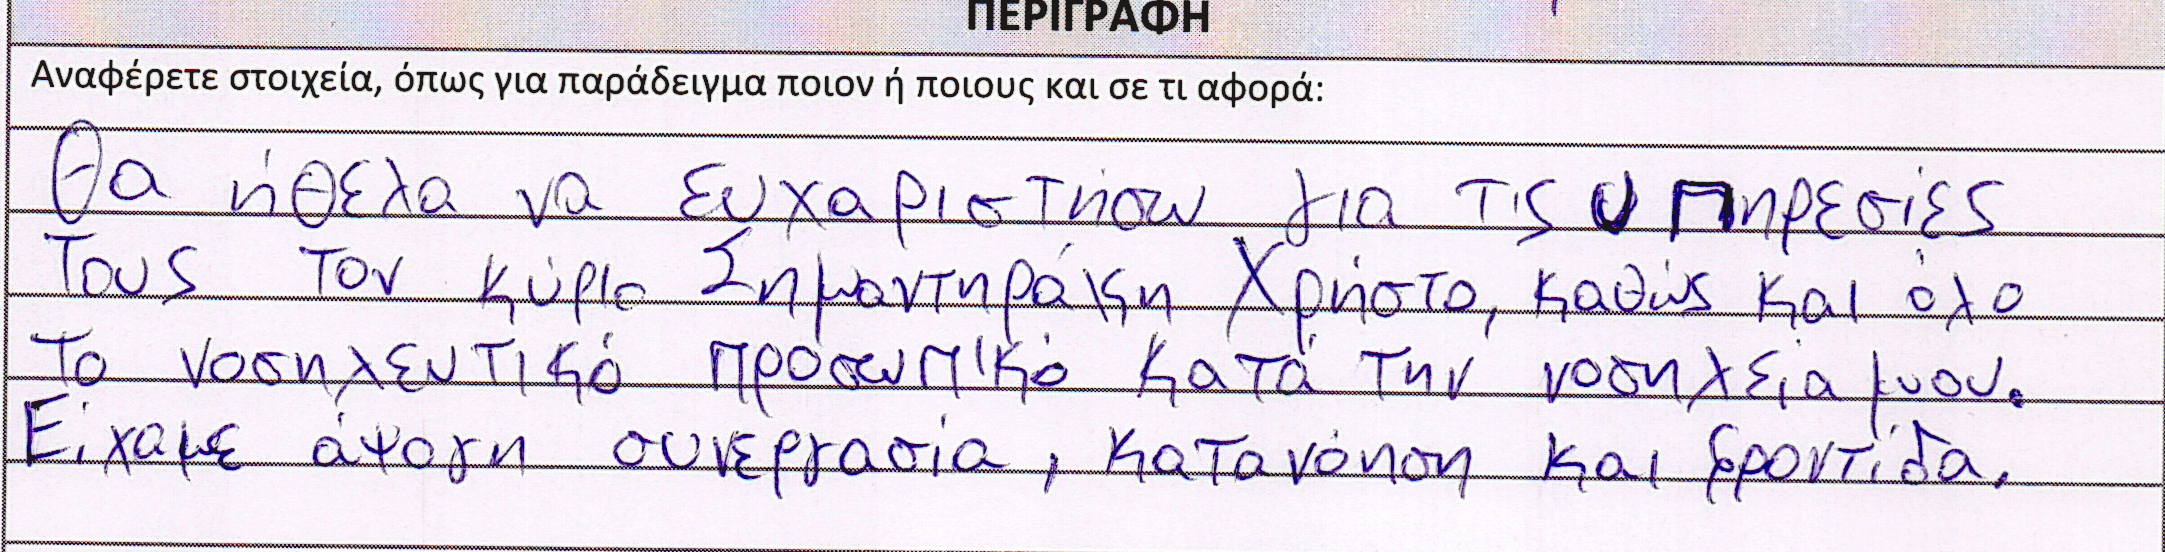 ΠΕΡΙΓΡΑΦΗ
Αναφέρετε στοιχεία, όπως για παράδειγμα ποιον ή ποιους και σε τι αφορά:
Θα ήθελα να ευχαριστήσω για τις υπηρεσίες
τους τον κύριο Σημαντηράκη Χρήστο, καθώς και όλο
το νοσηλευτικό προσωπικό κατά την νοσηλεία μου.
Είχαμε άψογη συνεργασία, κατανόηση και φροντίδα.